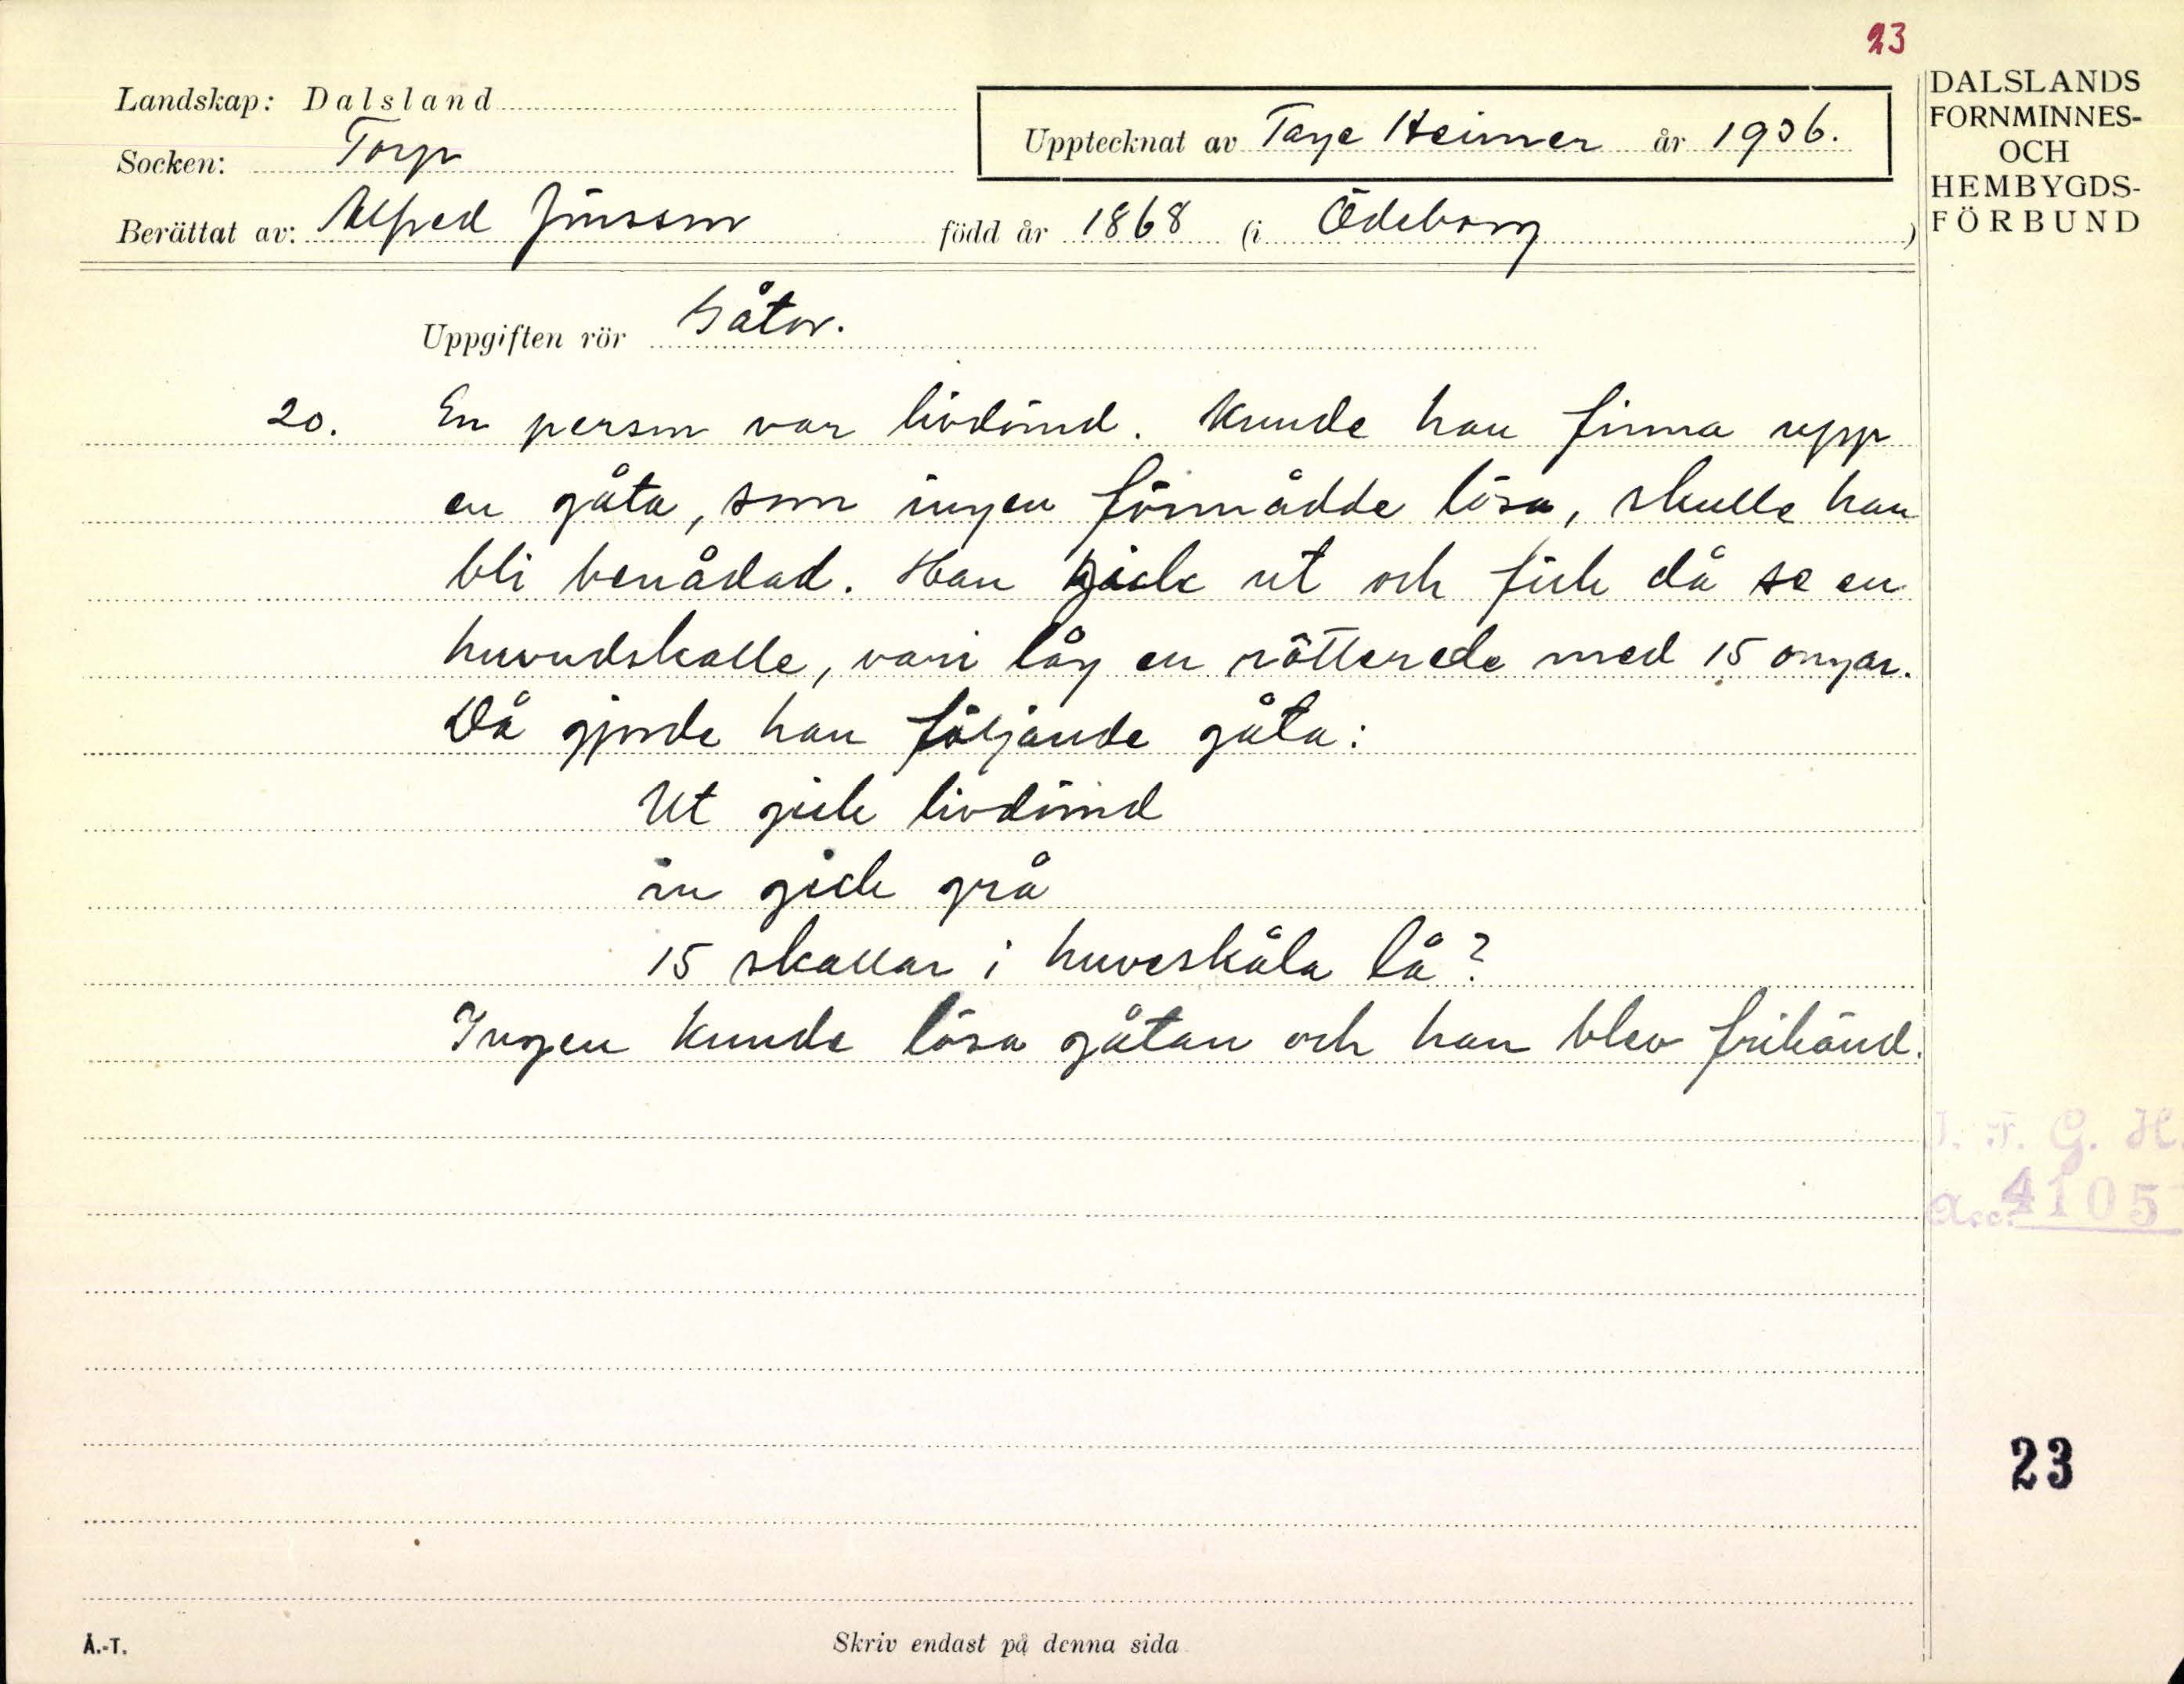 23
Landskap: Dalsland
Socken: Torp
Upptecknat av Tage Heimer år 1936.
Berättat av: Alfred Jönsson född år 1868 (i Ödeborg )
DALSLANDS
FORNMINNES-
OCH
HEMBYGDS-
FÖRBUND
Uppgiften rör Gåtor.
20. En person var livdömd. Kunde han finna upp
en gåta, som ingen förmådde lösa, skulle han
bli benådad. Han gick ut och fick då se en
huvudskalle, vari låg en råtterede med 15 ongar.
Då gjorde han följande gåta:
Ut gick livdömd
in gick grå
15 skallar i huveskåla lå?
Ingen kunde lösa gåtan och han blev frikänd.
I. F. G. H.
Acc. 4105
23
Å.-T.
Skriv endast på denna sida